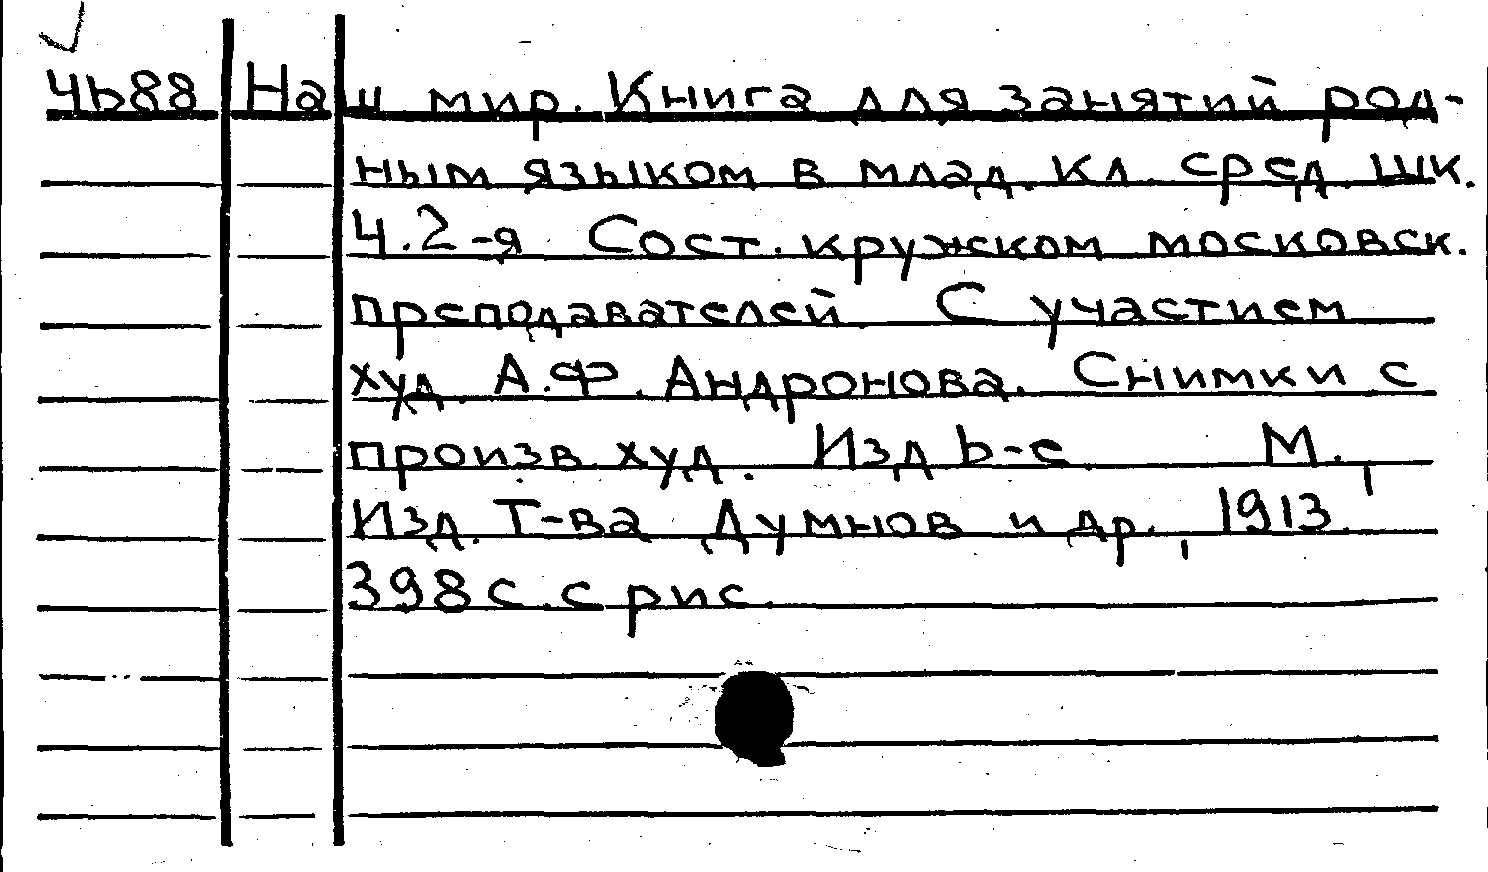 4b88 Наш мир. Книга для занятий род-
ным языком в млад. кл. сред. шк.
Ч.2-я Сост. кружком московск.
преподавателей С участием
худ. А.Ф. Андронова. Снимки с
произв. худ. Изд b-е М.,
Изд. Т-ва Думнов и др., 1913.
398 с. с рис.